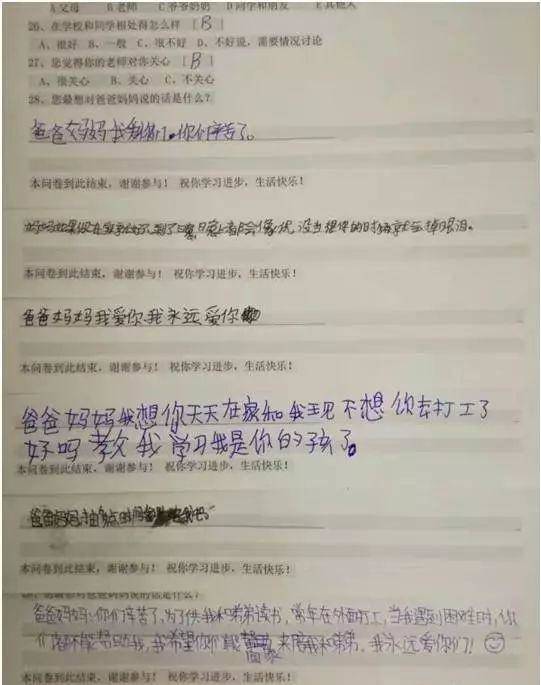 A 父母 B 老师 C 爷爷奶奶 D 同学和朋友 E 其他人
26、在学校和同学相处得怎么样 [B]
A、很好 B、一般 C、很不好 D、不好说，需要情况讨论
27、您觉得你的老师对你关心 [B]
A、很关心 B、关心 C、不关心
28、您最想对爸爸妈妈说的话是什么？
爸爸妈妈我爱你们。你们辛苦了。
本问卷到此结束，谢谢参与！ 祝你学习进步，生活快乐！
妈妈如果你在家就好了，到了晚上都会想你，每当想你的时候就会掉眼泪。
本问卷到此结束，谢谢参与！ 祝你学习进步，生活快乐！
爸爸妈妈我爱你我永远爱你
本问卷到此结束，谢谢参与！ 祝你学习进步，生活快乐！
爸爸妈妈我想你天天在家和我 不想你去打工了
好吗教我学习我是你的孩子。
本问卷到此结束，谢谢参与！ 祝你学习进步，生活快乐！
爸爸妈妈抽多点时间 我吧
本问卷到此结束，谢谢参与！ 祝你学习进步，生活快乐！
对爸爸妈妈说的话是什么？
爸爸妈妈：你们辛苦了，为了供我和弟弟读书，常年在外面打工，当我遇到困难时，你
们都不能帮助我，我希望你们能 回家 来陪我和弟弟，我永远爱你们！
本问卷到此结束，谢谢参与！ 祝你学习进步，生活快乐！